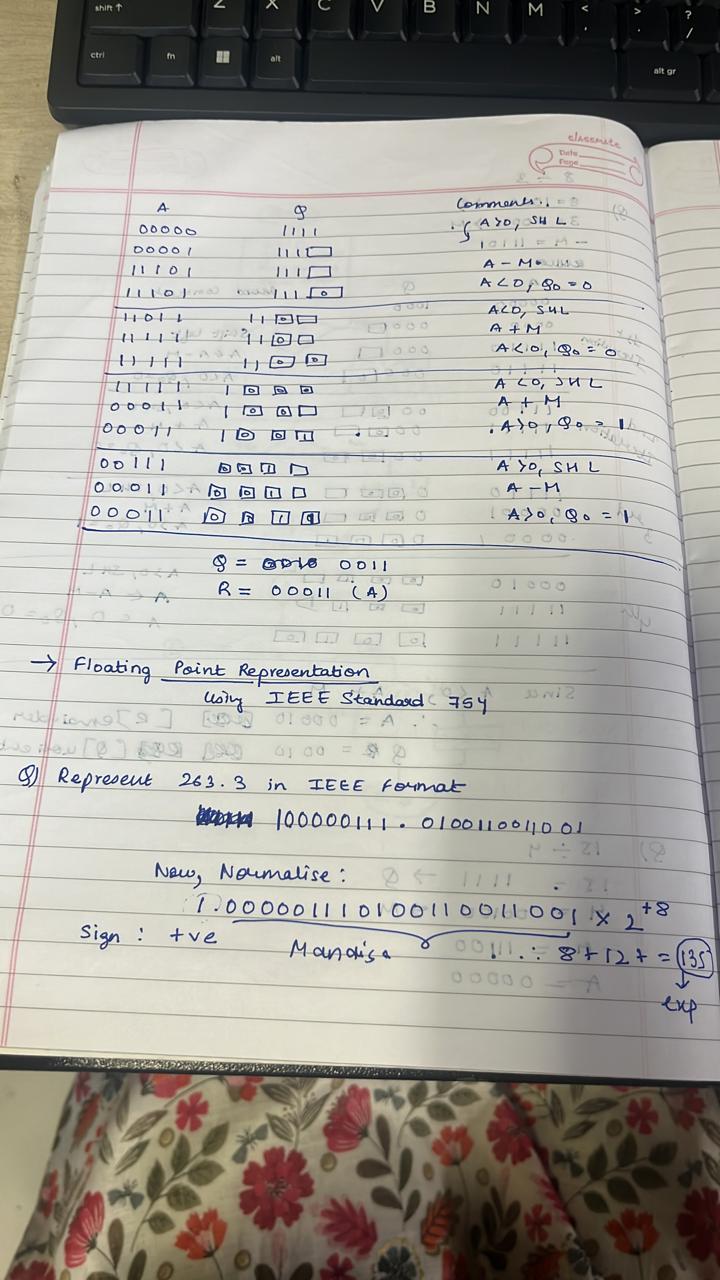 shift ↑ Z X C V B N M < > ?
, . /
ctrl fn alt alt gr
classmate
Date
Page
A Q Comments
00000 1111 A>0, SHL
00001 111□
11101 111□ A - M
11101 111[0] A<0, Q0 = 0
11011 11[0]□ A<0, SHL
11111 11[0]□ A + M
11111 11[0][0] A<0, Q0 = 0
11111 1[0][0]□ A<0, SHL
00011 1[0][0]□ A + M
00011 1[0][0][1] A>0, Q0 = 1
00111 [0][0][1]□ A>0, SHL
00011 [0][0][1]□ A - M
00011 [0][0][1][1] A>0, Q0 = 1
Q = 0011
R = 00011 (A)
→ Floating Point Representation
Using IEEE Standard 754
Q) Represent 263.3 in IEEE format
100000111.010011001001
Now, Normalise:
1.00000111010011001 1001 × 2+8
Sign: +ve Mandisa ∴ 8+127 = 135
exp